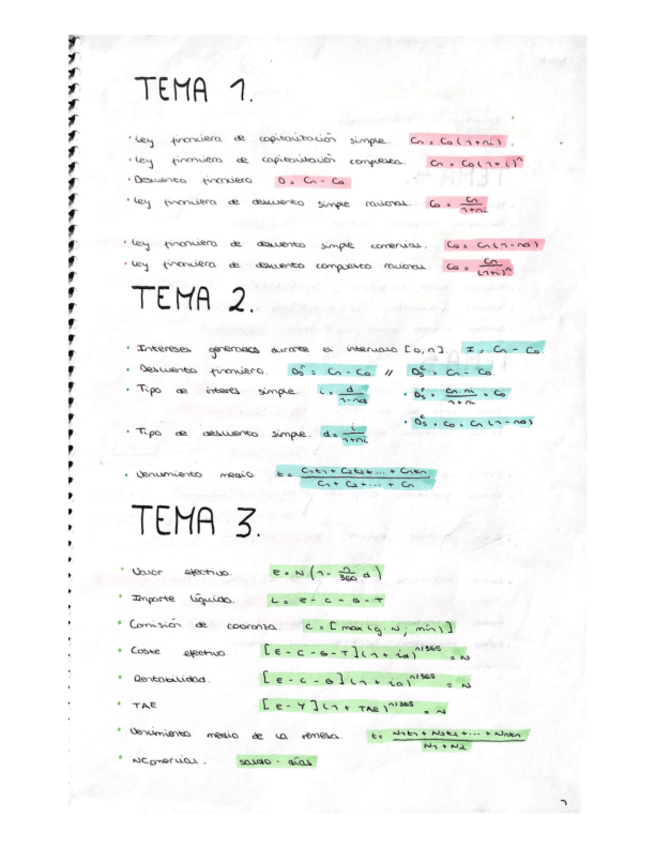 TEMA 1.
· Ley financiera de capitalización simple. Cn = Co (1+ni).
· Ley financiera de capitalización compuesta. Cn = Co (1+i)^n
· Descuento financiero. D = Cn - Co
· Ley financiera de descuento simple racional. Co = Cn/(1+ni)
· Ley financiera de descuento simple comercial. Co = Cn (1-nd)
· Ley financiera de descuento compuesto racional. Co = Cn/(1+i)^n
TEMA 2.
· Intereses generados durante el intervalo [0,n]. I = Cn - Co
· Descuento financiero. Ds^r = Cn - Co // Ds^c = Cn - Co
· Tipo de interés simple. i = d/(1-nd) · Ds^r = Cn·ni/(1+ni) = Co
· Ds^c = Co = Cn (1-nd)
· Tipo de descuento simple. d = i/(1+ni)
· Vencimiento medio t = (C1t1 + C2t2 + ... + Cntn)/(C1 + C2 + ... + Cn)
TEMA 3.
· Valor efectivo. E = N (1 - n/360 d)
· Importe líquido. L = E - C - G - T
· Comisión de cobranza. C = [max (g·N; mín)]
· Coste efectivo [E - C - G - T] (1 + ia)^n/365 = N
· Rentabilidad. [E - C - G] (1 + ia)^n/365 = N
· TAE [E - Y] (1 + TAE)^n/365 = N
· Vencimiento medio de la remesa. t = (N1t1 + N2t2 + ... + Nntn)/(N1 + N2)
· NComercial. saldo · días
1